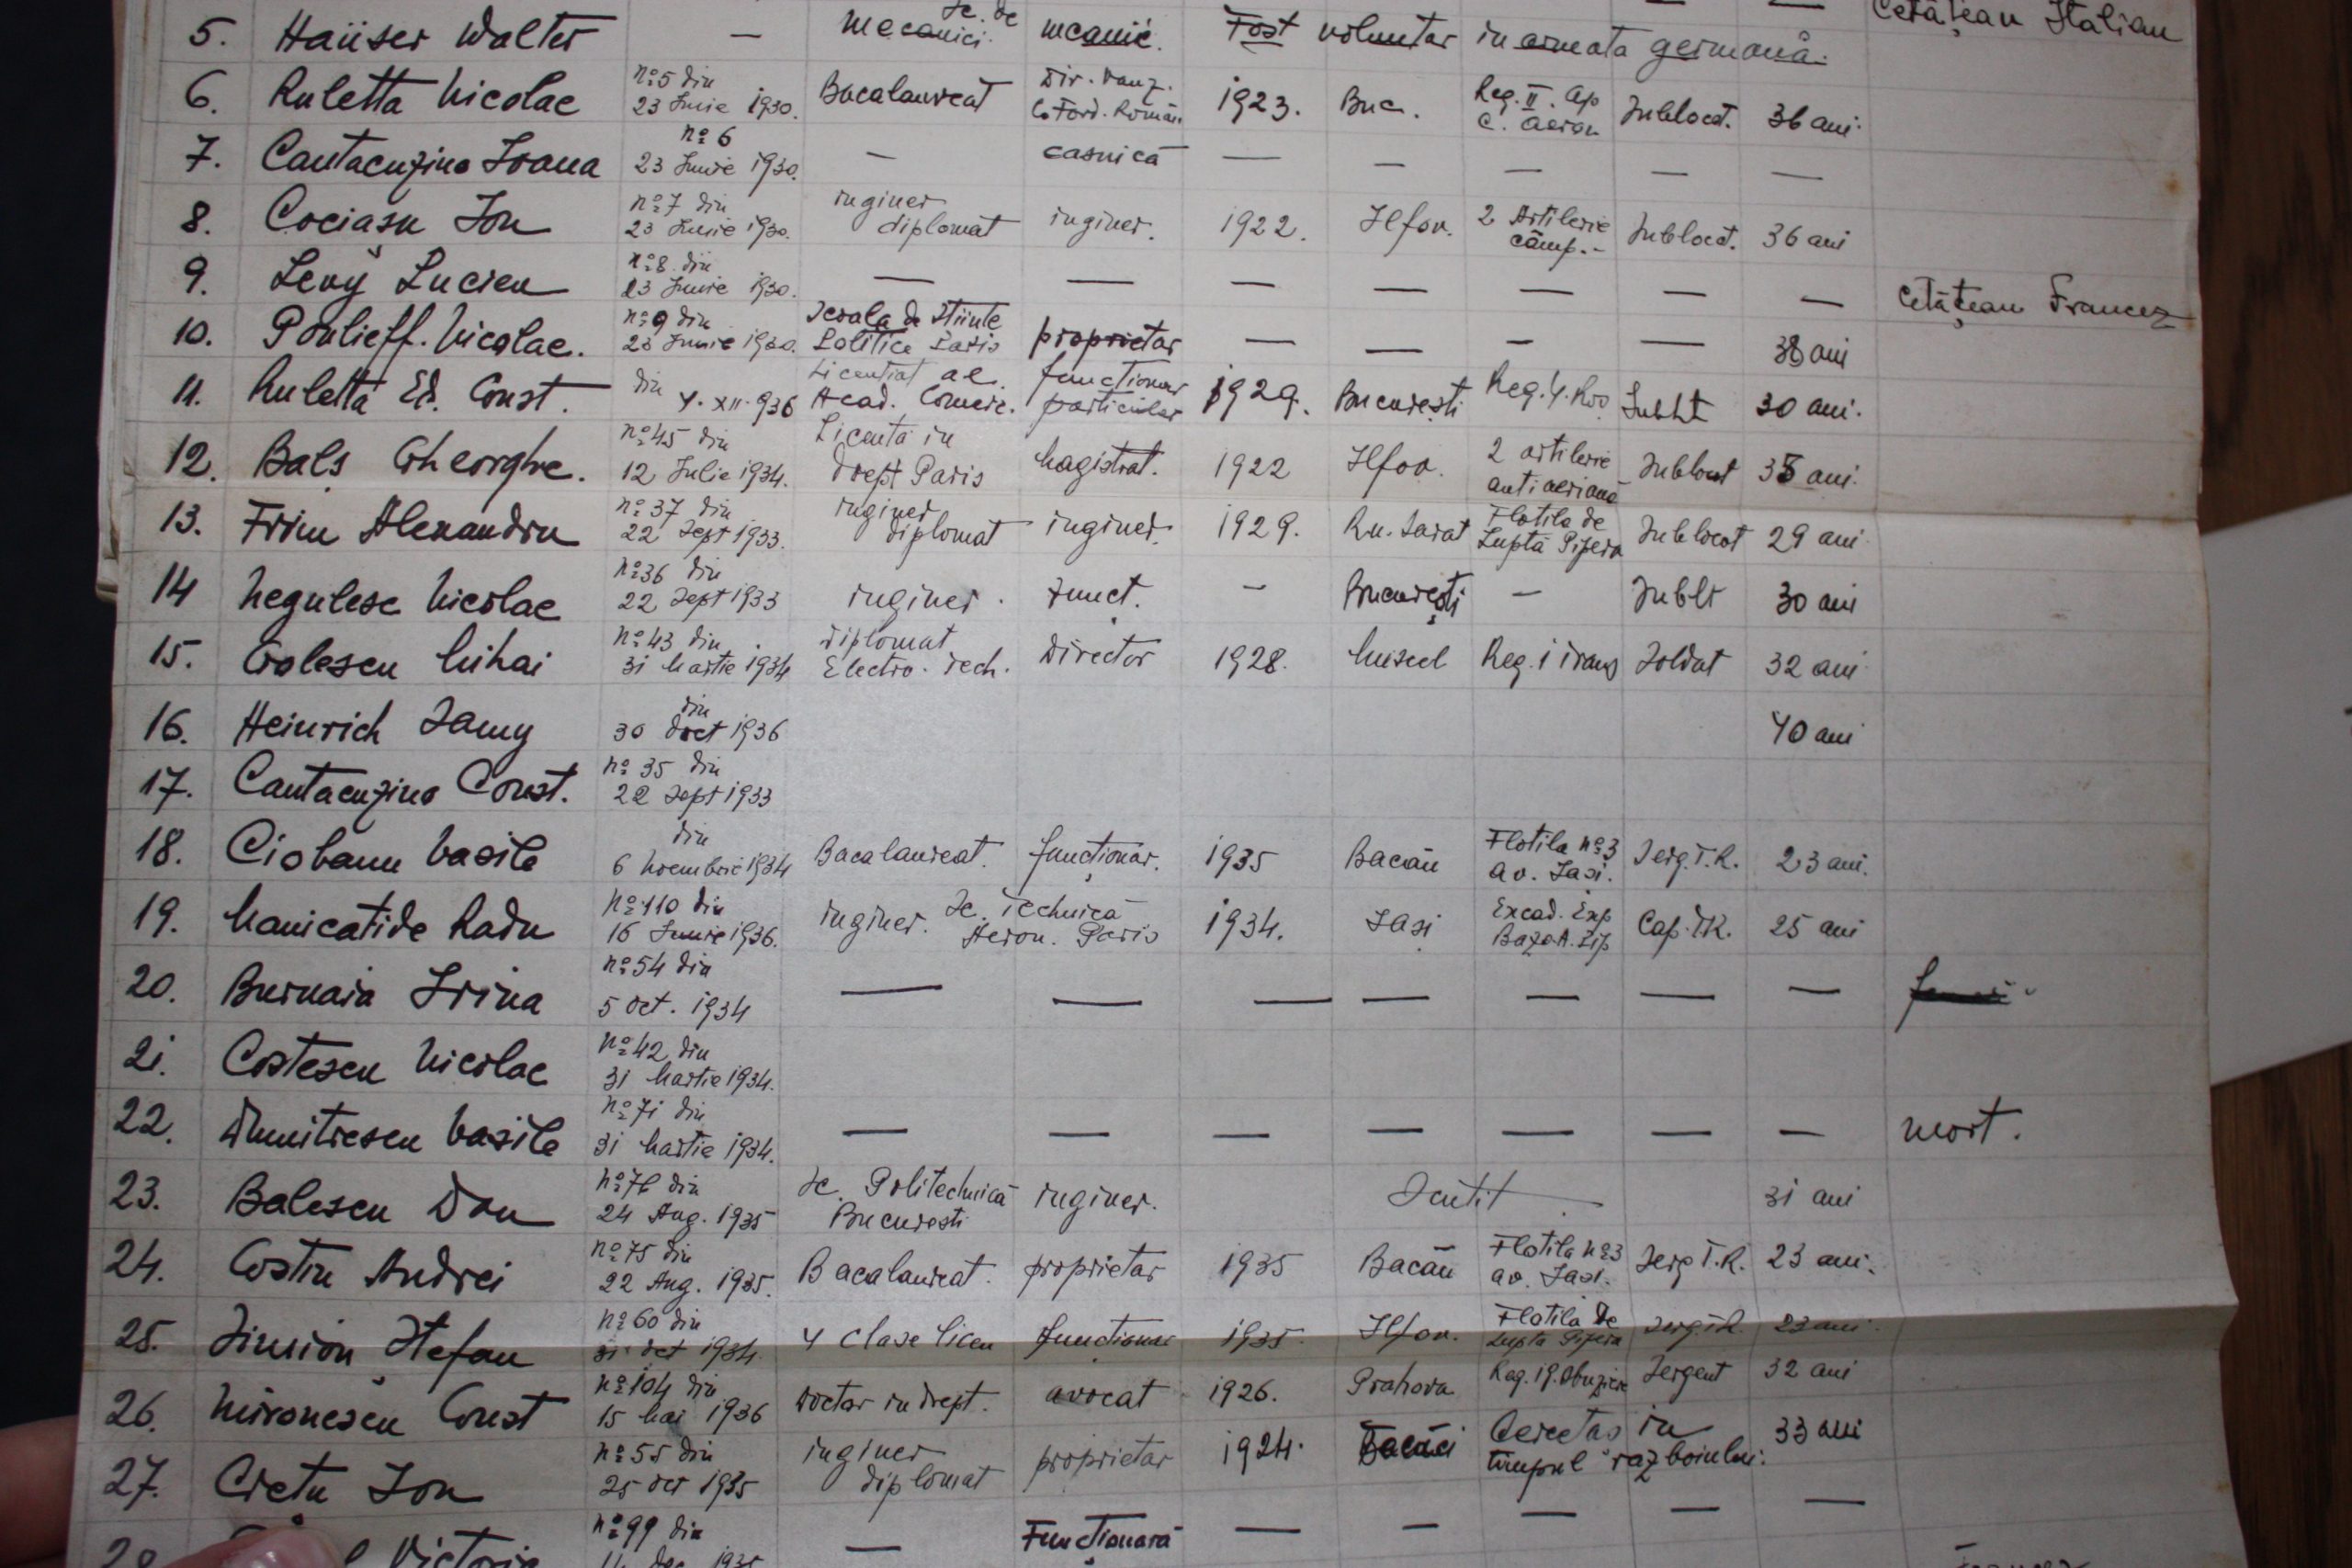 Cetățean Italian
5. Haüser Walter — Sc. de mecanici. mcanic. Fost voluntar in armata germană.
6. Ruletta Nicolae nº5 din 23 Iunie 1930. Bacalaureat Dir. Vanz. C. Ford. Român. 1923. Buc. Reg. II. Ap C. Aeron Sublocot. 36 ani.
7. Cantacuzino Ioana nº 6 23 Iunie 1930. — casnică — — — — —
8. Cociașu Ion nº7 din 23 Iunie 1930. inginer diplomat inginer. 1922. Ilfov. 2 Artilerie câmp.- Sublocot. 36 ani
9. Levy Lucien nº8 din 23 Iunie 1930. — — — — — — — Cetățean Francez
10. Poulieff. Nicolae. nº9 din 23 Iunie 1930. Scoala de Stiinte Politice Paris proprietar — — — — 38 ani
11. Ruletta Ed. Const. din 4. XII. 936 Licentiat al. Acad. Comerc. functionar particular 1929. București Reg. 4. Roș Subłt 30 ani.
12. Balș Gheorghe. nº45 din 12 Iulie 1934. Licenta in drept Paris Magistrat. 1922 Ilfov. 2 artilerie antiaeriană Sublocot 35 ani.
13. Frim Alexandru nº37 din 22 Sept 1933. inginer diplomat inginer. 1929. Rm. Sarat Flotila de Luptă Pipera Sublocot 29 ani.
14 Negulesc Nicolae nº36 din 22 Sept 1933 inginer. Funct. — București — Sublt 30 ani
15. Golescu Mihai nº43 din 31 Martie 1934 diplomat Electro. Tech. Director 1928. Muscel Reg. 1 trans Soldat 32 ani.
16. Heinrich Samy din 30 Oct 1936 40 ani
17. Cantacuzino Const. nº 35 din 22 Sept 1933
18. Ciobanu Vasile din 6 Noembrie 1934 Bacalaureat. funcționar. 1935 Bacău Flotila nº3 av. Iași. Serg T.R. 23 ani.
19. Manicatide Radu nº110 din 16 Iunie 1936. inginer. Sc. Technică Aeron. Paris 1934. Iași Escad. Exp Baza A. Pip Cap. TR. 25 ani
20. Burnaia Irina nº54 din 5 Oct. 1934 — — — — — — —
21. Costescu Nicolae nº42 din 31 Martie 1934.
22. Dumitrescu Vasile nº71 din 31 Martie 1934. — — — — — — — mort.
23. Balescu Dan nº76 din 24 Aug. 1935 Sc. Politechnică Bucuresti inginer. Scutit — 31 ani
24. Costin Andrei nº75 din 22 Aug. 1935. Bacalaureat. proprietar 1935 Bacău Flotila nº3 av. Iași. Serg T.R. 23 ani.
25. Simion Ștefan nº60 din 31 Oct 1934. 4 clase liceu funcționar 1935. Ilfov. Flotila de Lupta Pipera Serg T.R. 23 ani.
26. Mironescu Const nº104 din 15 Mai 1936 Doctor in drept. avocat 1926. Prahova Reg. 19. Obuziere Sergent 32 ani
27. Crețu Ion nº55 din 25 Oct 1935 inginer diplomat proprietar 1924. Cercetaș in timpul razboiului. 33 ani
Victoria nº99 din 1935 — Funcționară — — — — —